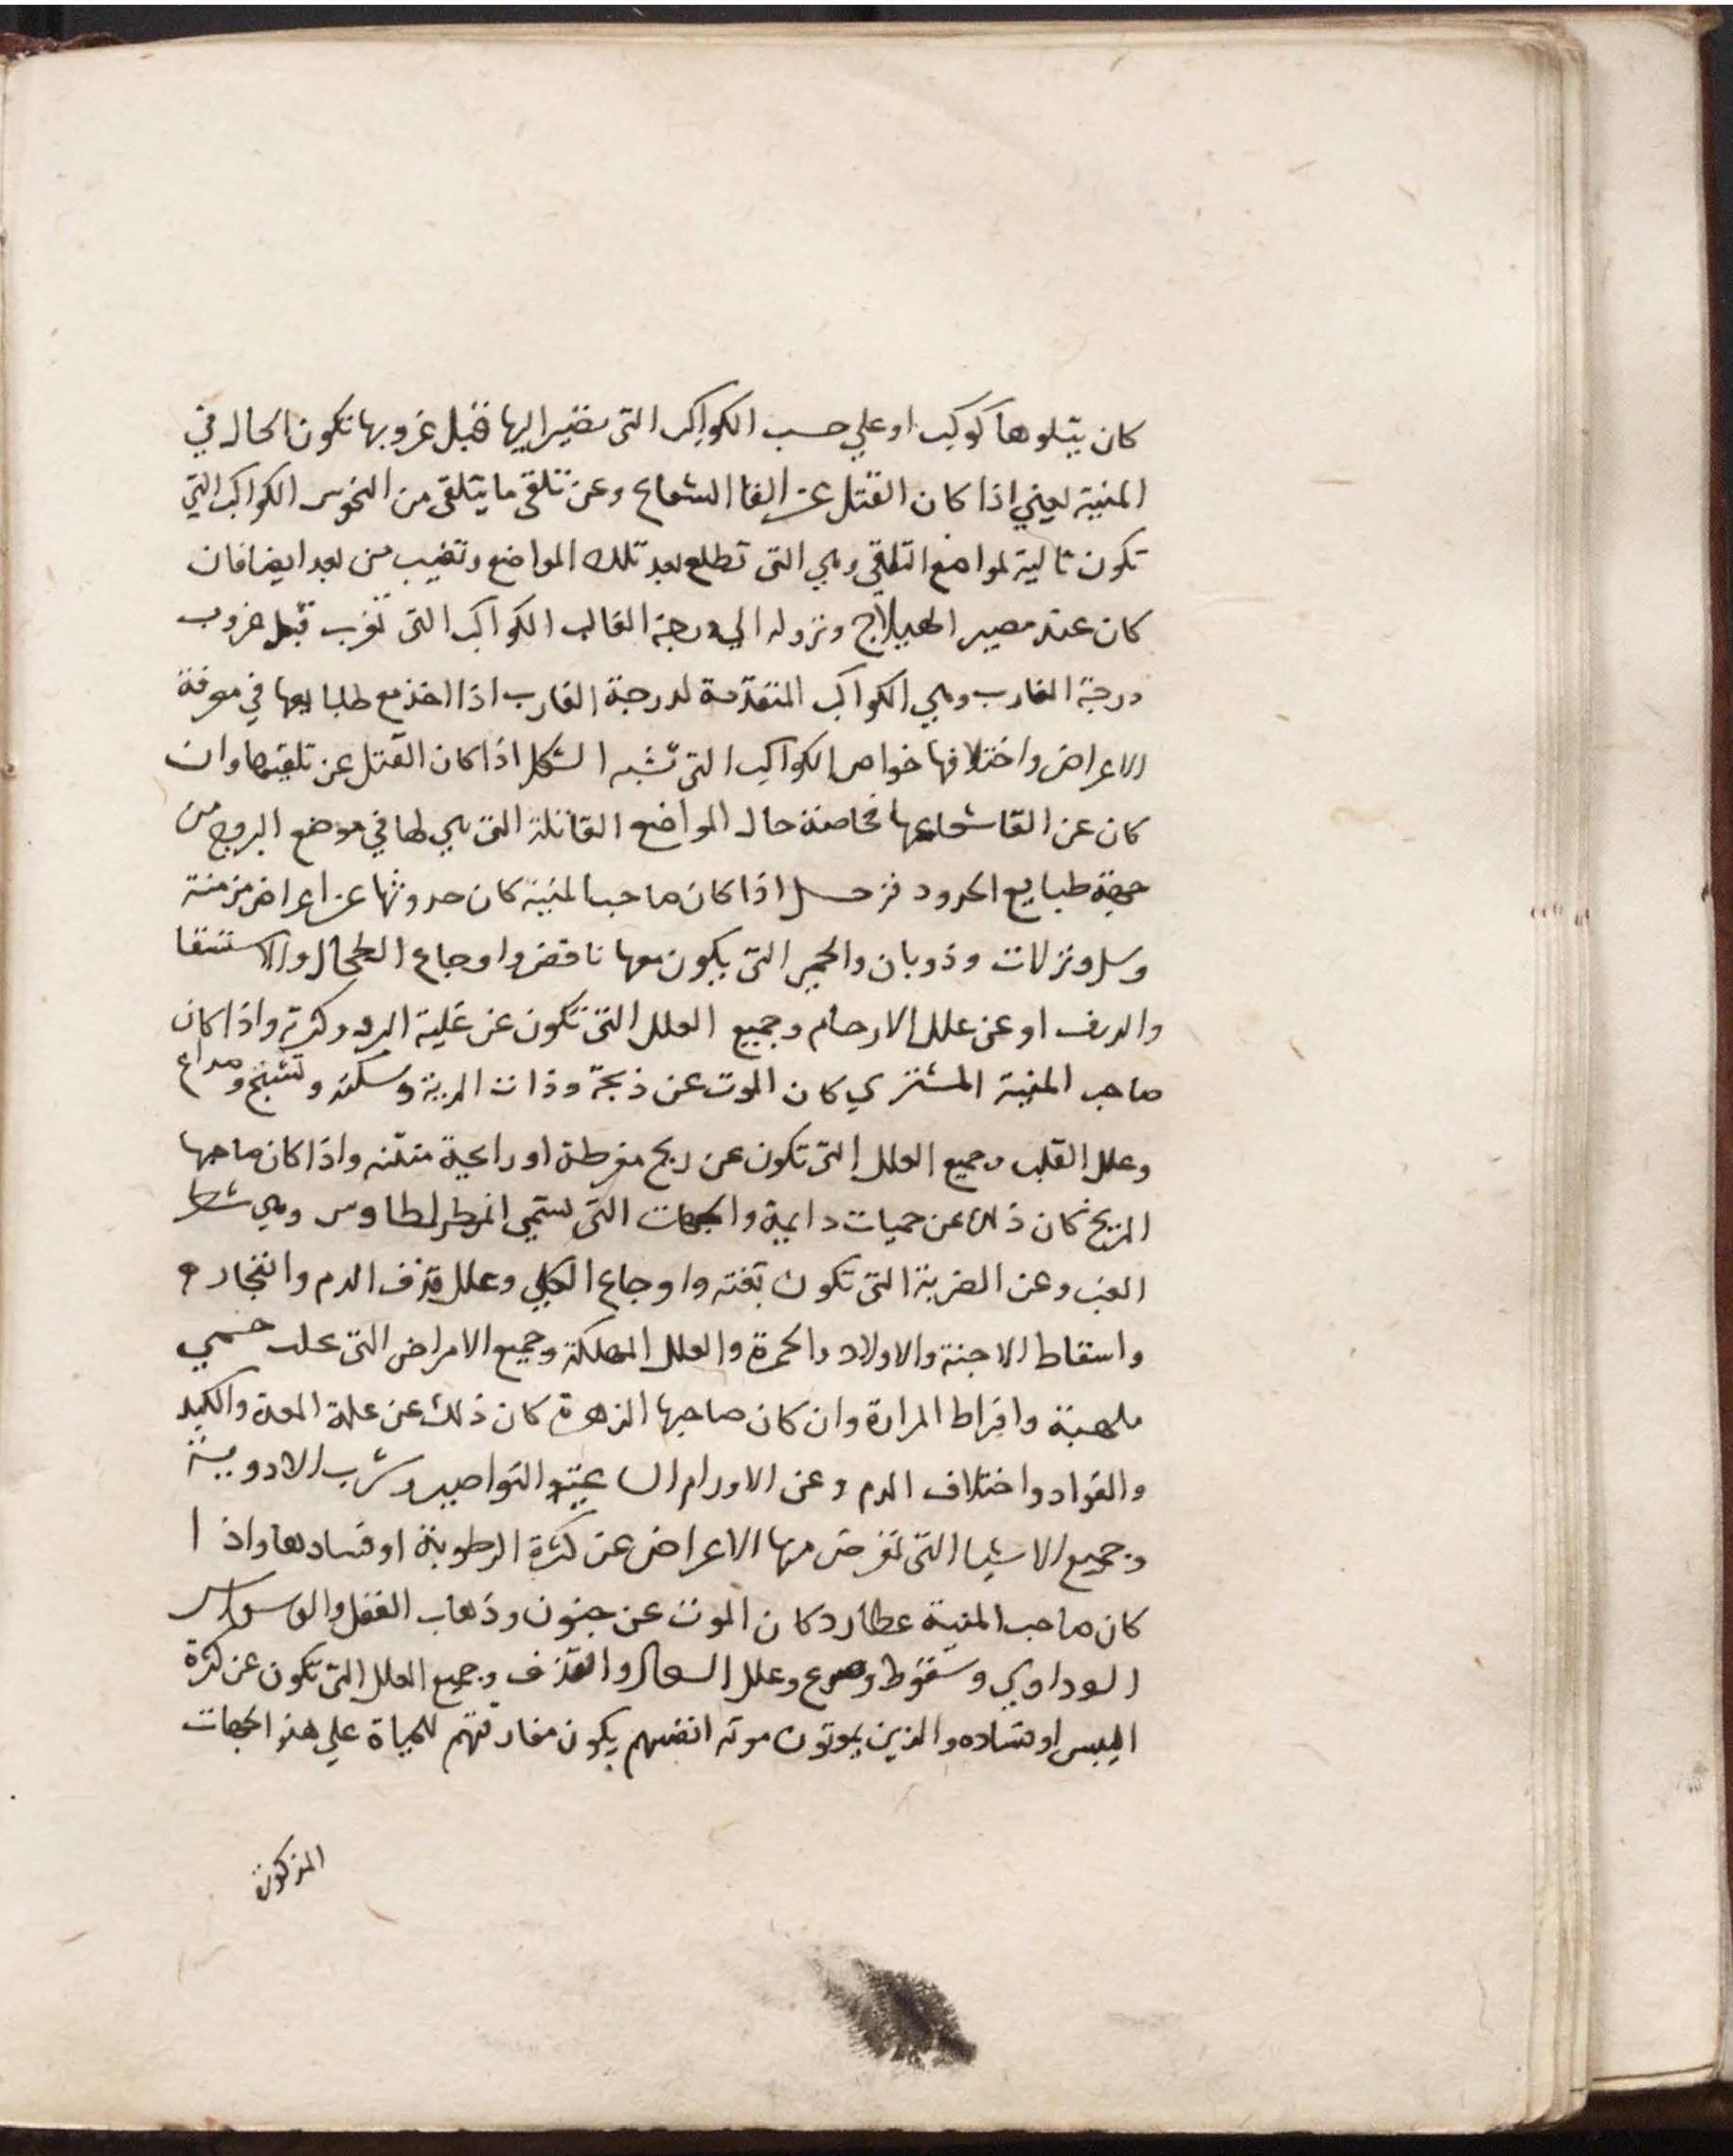 كان يتلوها كوكب او علي حسب الكواكب التى تصير اليها فقبل غروبها تكون الحال في
المنية يعني اذا كان القتل عن القا الشعاع وعن تلقى ما يتلقى من النحوس الكواكب التي
تكون تالية لمواضع التلقي وهي التى تطلع بعد تلك المواضع وتغيب من بعد ايضا فان
كان عند مصير الهيلاج ونزوله الي درجة الغالب الكواكب التى تغرب قبل غروب
درجة الغارب وهي الكواكب المتقدمة لدرجة الغارب اذا اخذ مع طبايعها في معرفة
الاعراض واختلافها خواص الكواكب التى تشبه الشكل اذا كان القتل عن تلقيها وان
كان عن القا شعاعها فخاصة حال المواضع القاتلة التى هي لها في موضع البروج من
جهة طبايع الحدود فزحل اذا كان صاحب المنية كان حدوثها عن اعراض مزمنة
وسل ونزلات وذوبان والحمى التى يكون معها نافض واوجاع الطحال والاستسقا
او عن علل الارحام وجميع العلل التى تكون عن غلبة البرد وكثرته واذا كان
صاحب المنية المشتري كان الموت عن ذبحة وذات الرية وسكتة وتشنج وصداع
وعلل القلب وجميع العلل التى تكون عن ريح مفرطة او رايحة منتنه واذا كان صاحبها
المريخ كان ذلك عن حميات دايمة التى تسمي وهي شطر
الغب وعن الضربة التى تكون بغته واوجاع الكلي وعلل قذف الدم وانفجاره
واسقاط الاجنة والاولاد والحمرة والعلل المهلكة وجميع الامراض التى حمي
ملهبة وافراط المرارة وان كان صاحبها الزهرة كان ذلك عن علة المعدة والكبد
والفواد واختلاف الدم وعن الاورام والنواصير وشرب الادوية
وجميع الاشيا التى تعرض منها الاعراض عن كثرة الرطوبة او فسادها واذا
كان صاحب المنية عطارد كان الموت عن جنون وذهاب العقل والوسواس
السوداوي وسقوط وصرع وعلل السعال والقذف وجميع العلل التى تكون عن كثرة
اليبس او فساده والذين يموتون موته انفسهم يكون مفارقتهم للحياة علي هذه الجهات
المذكورة